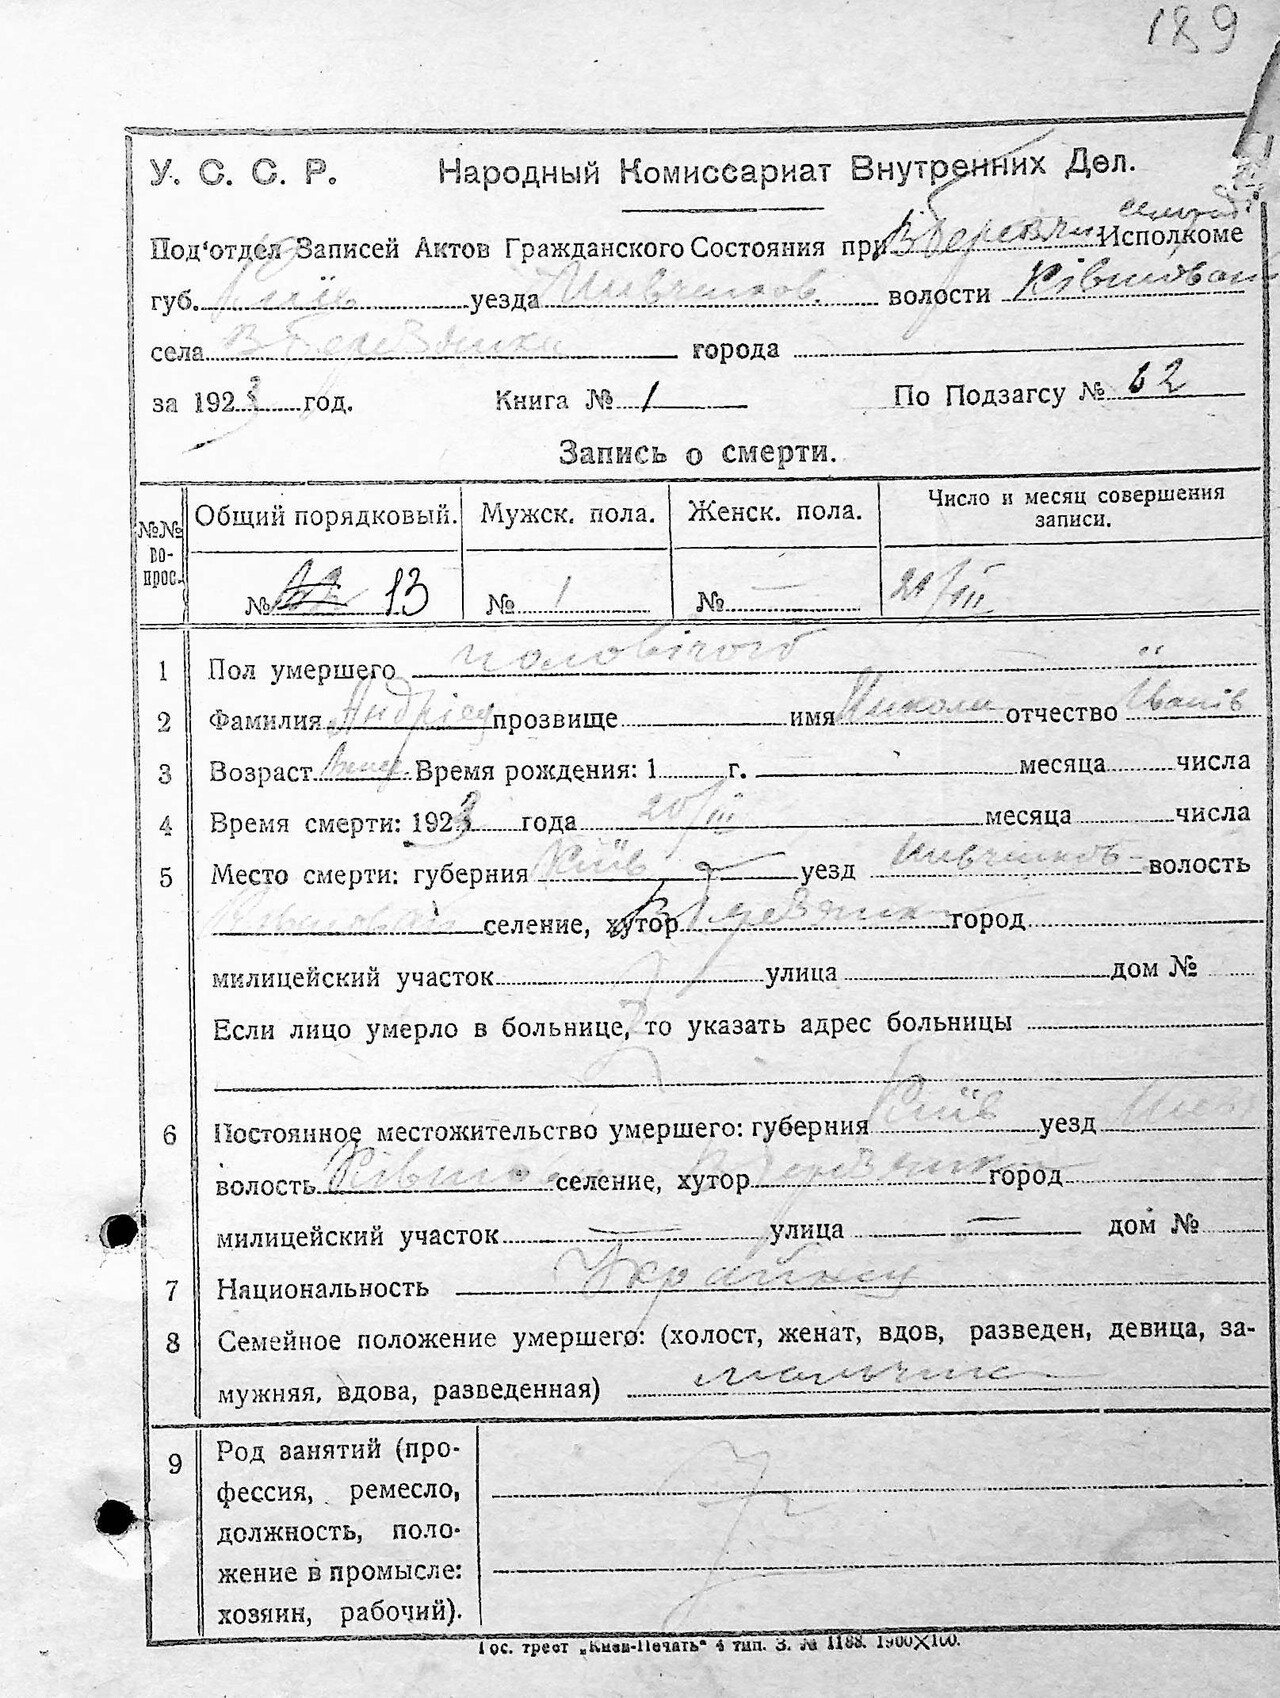 189
У. С. С. Р. Народный Комиссариат Внутренних Дел.
Под'отдел Записей Актов Гражданского Состояния при Исполкоме
губ. Київ уезда волости
села В Березянки города
за 1923 год. Книга № 1 По Подзагсу № 62
Запись о смерти.
№№ во-прос. Общий порядковый. Мужск. пола. Женск. пола. Число и месяц совершения записи.
№ 13 № 1 № — 21/III
1 Пол умершего чоловічого
2 Фамилия Андрієц прозвище имя Микола отчество Іванів
3 Возраст Время рождения: 1 г. месяца числа
4 Время смерти: 1923 года 20/III месяца числа
5 Место смерти: губерния Київ уезд волость
селение, хутор В Березянки город
милицейский участок улица дом №
Если лицо умерло в больнице, то указать адрес больницы
6 Постоянное местожительство умершего: губерния Київ уезд
волость селение, хутор В Березянки город
милицейский участок — улица — дом №
7 Национальность Українец
8 Семейное положение умершего: (холост, женат, вдов, разведен, девица, за-
мужняя, вдова, разведенная) мальчик
9 Род занятий (про-
фессия, ремесло,
должность, поло-
жение в промысле:
хозяин, рабочий).
Гос. трест „Киев-Печать“ 4 тип. З. № 1188. 1900×100.